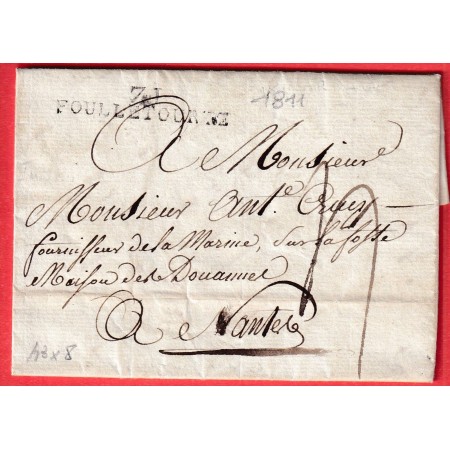 1811
71
FOULLETOURTE
A Monsieur
Monsieur Ant.e Crucy
fournisseur de la Marine, Sur la fosse
Maison des Douannes
A Nantes
43 x 8